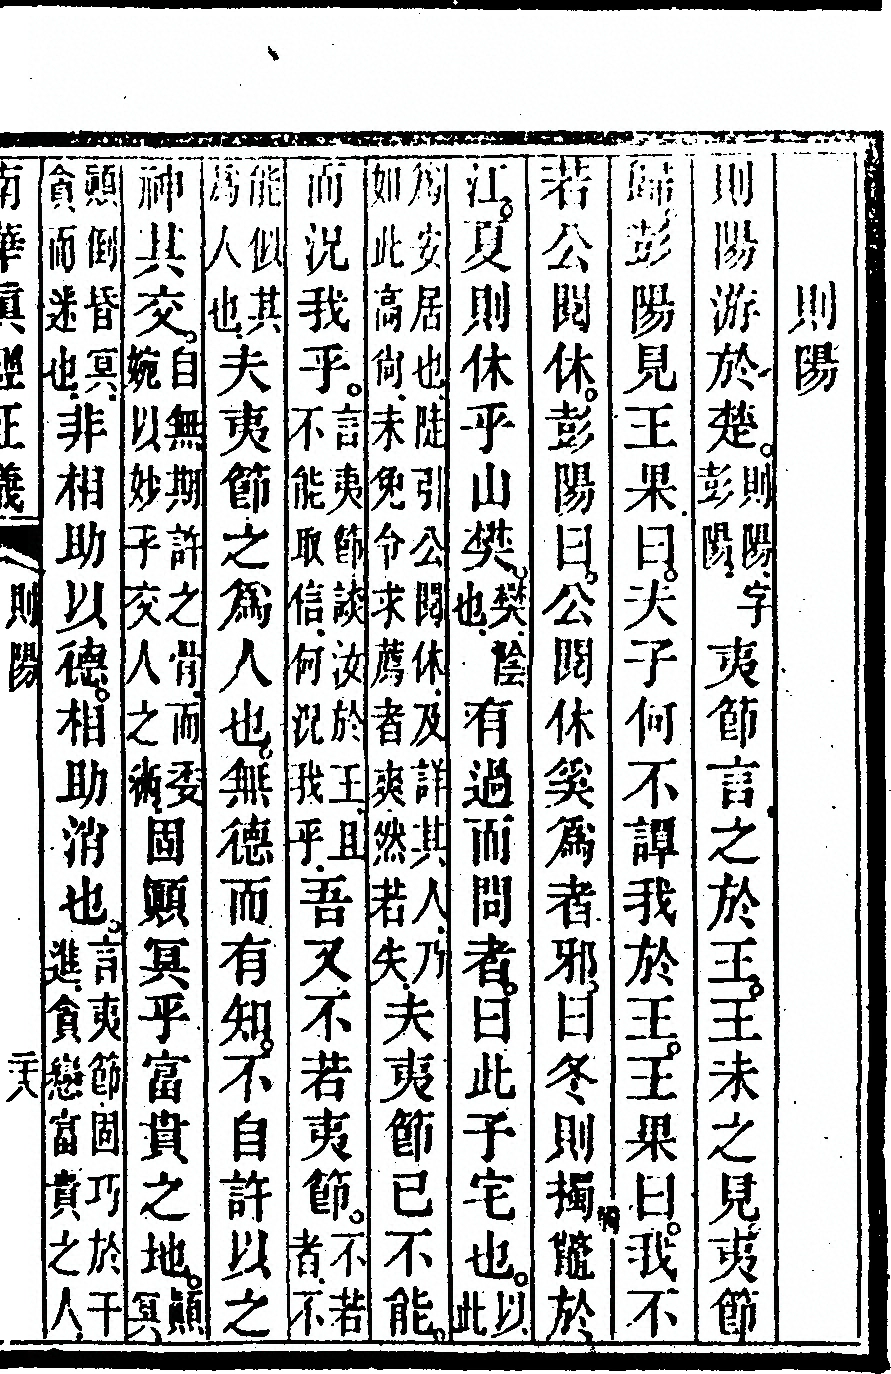 則陽
則陽游於楚。則陽。字彭陽。夷節言之於王。王未之見。夷節
歸。彭陽見王果曰。夫子何不譚我於王。王果曰。我不
若公閱休。彭陽曰。公閱休奚爲者邪。曰冬則擉鼈於
江。夏則休乎山樊。樊。陰也。有過而問者。曰此予宅也。以此
爲安居也。陡引公閱休。及詳其人。乃如此高尚。未免令求薦者爽然若失。夫夷節已不能。
而況我乎。言夷節談汝於王。且不能取信。何況我乎。吾又不若夷節。不若者。不
能似其爲人也。夫夷節之爲人也。無德而有知。不自許以之
神其交。自無期許之骨。而委婉以妙乎交人之術。固顚冥乎富貴之地。顚冥。
顚倒昏冥。貪而迷也。非相助以德。相助消也。言夷節固巧於干進。貪戀富貴之人。
南華眞經正義 則陽 二八